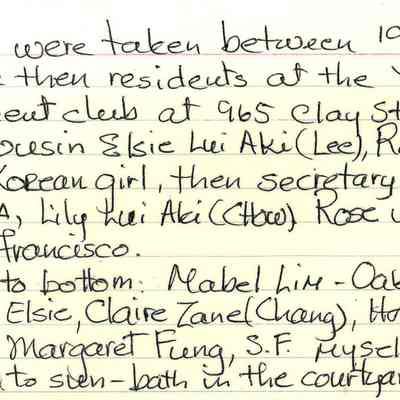 were taken between 19
then residents at the Y
ent club at 965 Clay St
ousin Elsie Lui Aki (Lee), R
Korean girl, then secretary
A, Lily Lui Aki (Chow) Rose
francisco.
to bottom: Mabel Lim - Oak
Elsie, Claire Zane (Chang), Ho
Margaret Fung, S.F. Mysel
to sun-bath in the courtyar